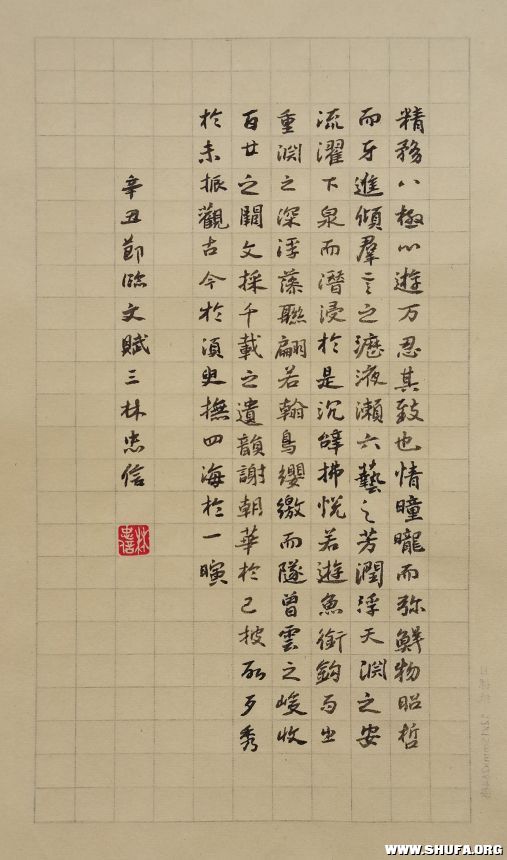 精務八極心遊万忍其致也情曈曨而弥鮮物昭哲
而牙進傾羣言之瀝液漱六藝之芳潤浮天渊之安
流濯下泉而潛浸於是沉辞拂悦若遊魚銜鈎而出
重渊之深浮藻聯翩若翰鳥纓繳而隧曾雲之峻收
百廿之闕文採千載之遺韻謝朝華於已披啟夕秀
於未振觀古今於須臾撫四海於一瞚
辛丑節臨文賦三林忠信
林忠信
WWW.SHUFA.ORG